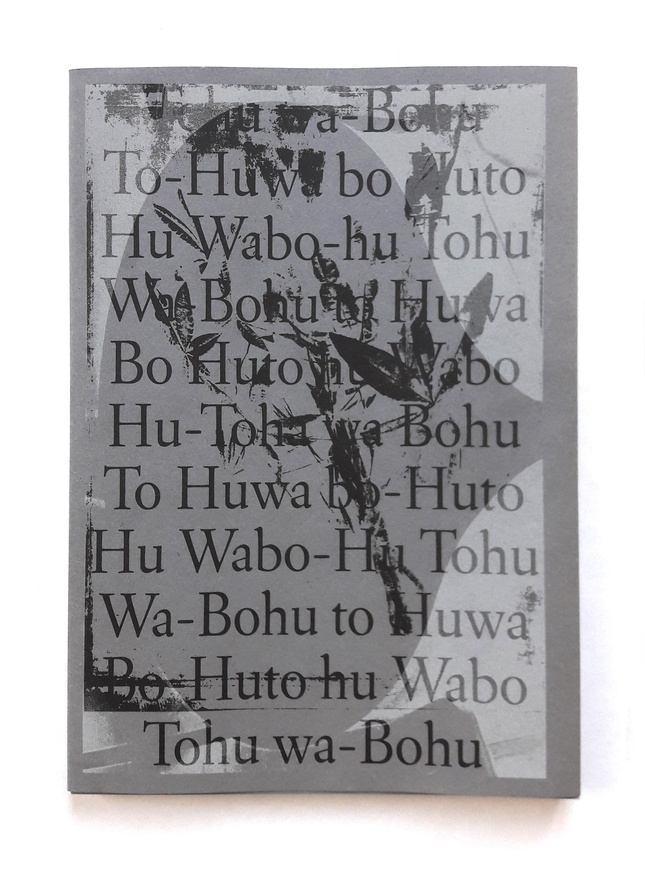 Tohu wa-Bohu
To-Huwa bo Huto
Hu Wabo-hu Tohu
Wa-Bohu to Huwa
Bo Huto hu Wabo
Hu-Toha wa Bohu
To Huwa bo-Huto
Hu Wabo-Hu Tohu
Wa-Bohu to Huwa
Bo-Huto hu Wabo
Tohu wa-Bohu